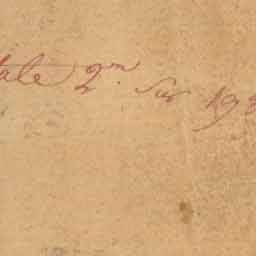 tale 2n. Ser 193